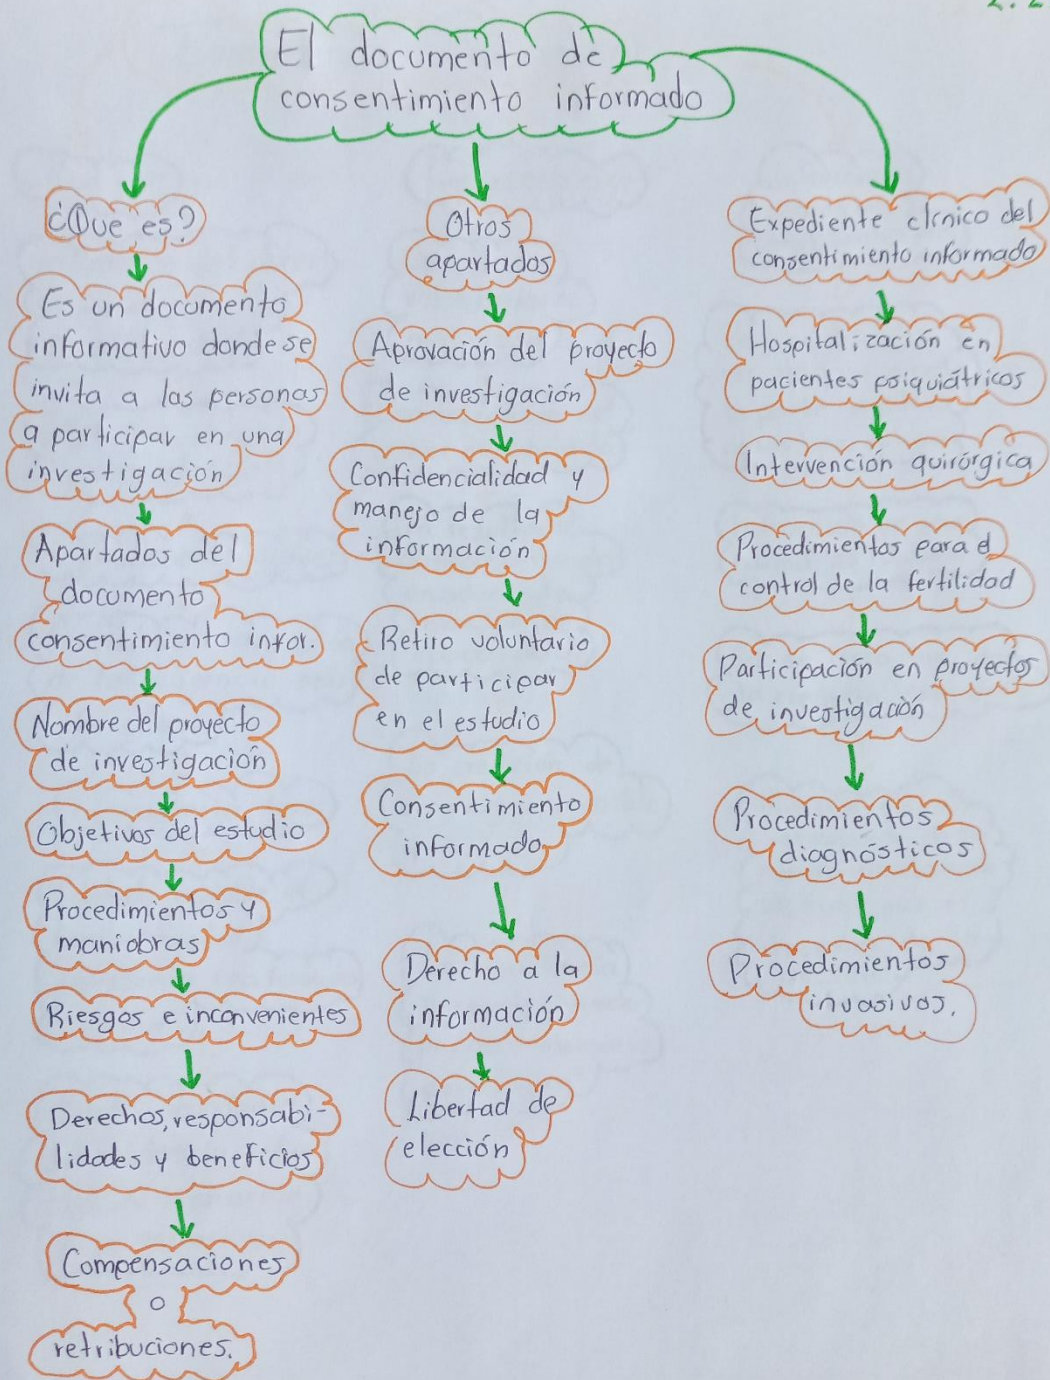 El documento de
consentimiento informado
¿Que es?
Es un documento
informativo donde se
invita a las personas
a participar en una
investigación
Apartados del
documento
consentimiento infor.
Nombre del proyecto
de investigación
Objetivos del estudio
Procedimientos y
maniobras
Riesgos e inconvenientes
Derechos, responsabi-
lidades y beneficios
Compensaciones
o
retribuciones.
Otros
apartados
Apravación del proyecto
de investigación
Confidencialidad y
manejo de la
información
Retiro voluntario
de participar
en el estudio
Consentimiento
informado
Derecho a la
información
Libertad de
elección
Expediente clínico del
consentimiento informado
Hospitalización en
pacientes psiquiátricos
Intervención quirúrgica
Procedimientos para el
control de la fertilidad
Participación en proyectos
de investigación
Procedimientos
diagnósticos
Procedimientos
invasivos.